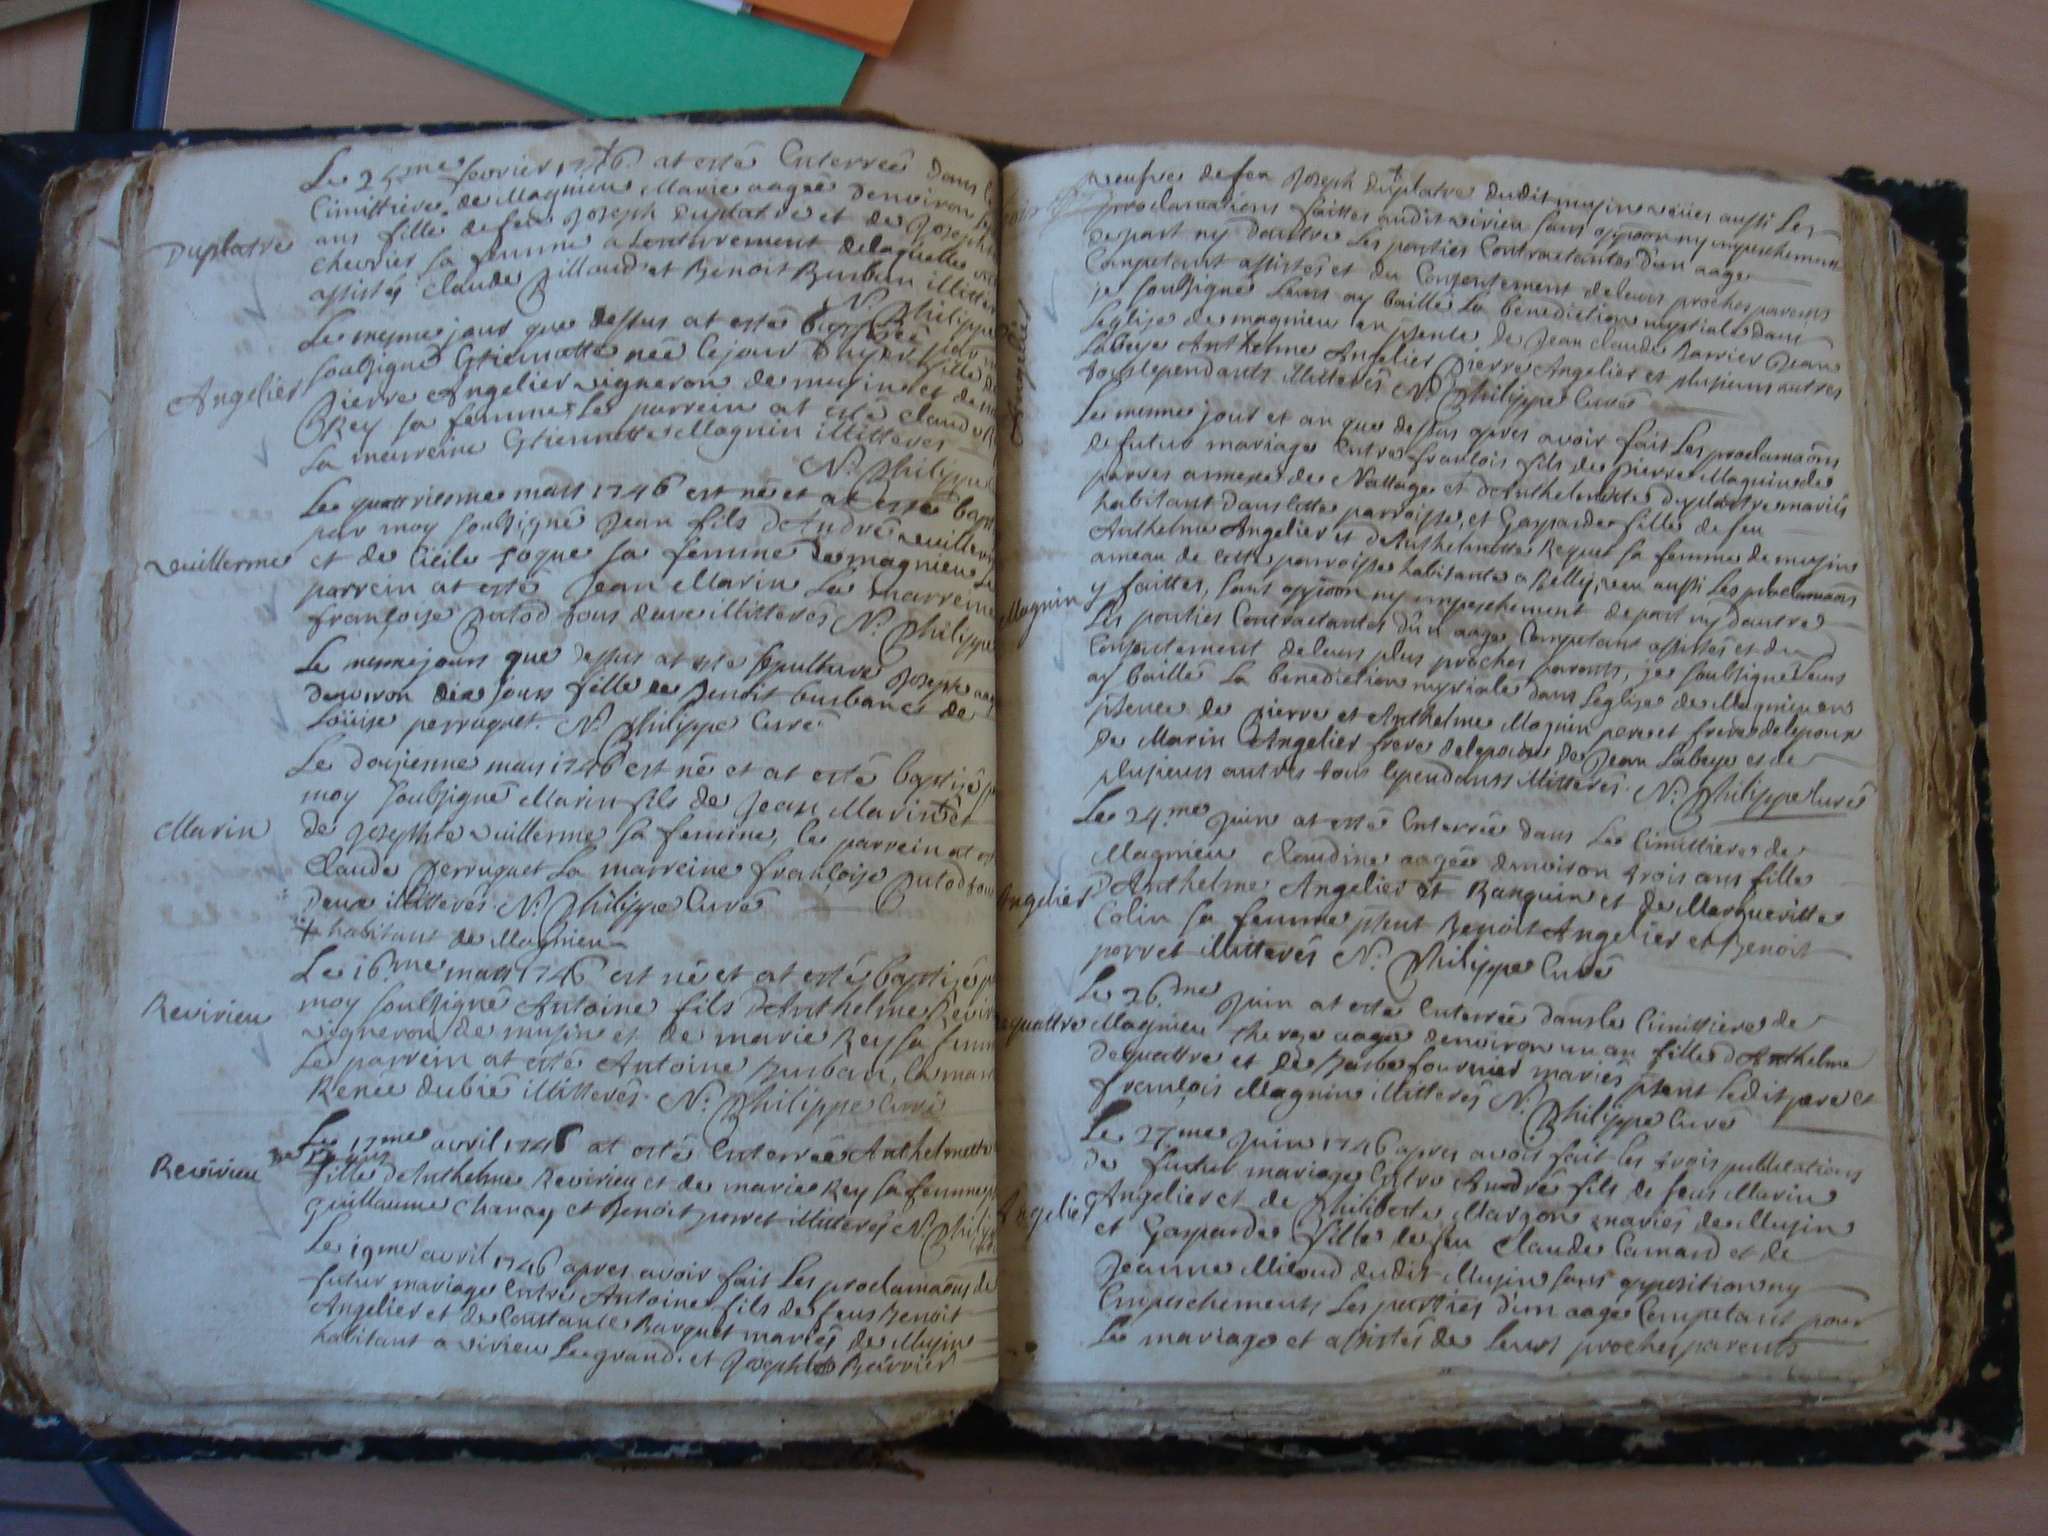 Le 25me fevrier 1746 at esté Enterreé dans
Cimittiere de Magnieu Marie aageé denviron
Duplatre
ans fille de feu Joseph Duplatre et de Joseph
chevrier sa femme a Lenterrement delaquelle
assistés Claude Billaud et Benoit Burban illitter
N. Philippe
Le mesme jour que dessus at esté baptiseé par
Angelier
soubsigné Etiennette neé le jour
Pierre Angelier vigneron de musin et de
Rey sa femme, Le parrein at esté claude
La marreine Etiennette Magnin illitteres
N. Philippe
Le quattriesme mars 1746 est né et at esté bapt
par moy soubsigné Jean fils d'André vuillerm
Vuillerme
et de Cécile Foque sa femme de magnieu Le
parrein at esté Jean Marin La marreine
françoise Putod tous deux illitterés N. Philippe
Le mesme jours que dessus at esté sepulturé Joseph
denviron dix jours fille de Benoit burban et de
Loüise perruquet. N. Philippe Curé
Le douzienne mars 1746 est né et at esté baptisé p
moy soubsigné Marin fils de Jean Marin + et
Marin
de Josephte vuillerme sa femme, le parrein at es
Claude Perruquet La marreine françoise Putod tous
deux illitterés N. Philippe Curé
+ habitant de Magnieu
Le 16me mars 1746 est né et at esté baptisé p
Revirieu
moy soubsigné Antoine fils d'Anthelme Revir
vigneron de musin et de marie Rey sa femm
Le parrein at esté Antoine Burban, la marr
Renée dubié illitterés N. Philippe Curé
Le 17me avril 1746 at esté Enterreé Anthelmette
Revirieu
fille d'Anthelme Revirieu et de marie Rey sa femme
guillaume chanay et Benoit porret illitterés N. Philip
Le 19me avril 1746 apres avoir fait Les proclamaons de
futur mariage Entre Antoine fils de feus Benoit
Angelier et de Constance Barquet mariés de Musin
habitant a virieu Legrand. et Josephte Beirrier
veufve de feu Joseph Duplatre dudit musin veües aussi Les
proclamations faittes audit virieu sans oppoon ny empeschement
de part ny dautre Les parties Contractantes d'un aage
Competant assistés et du Consentement deleurs proches parens
je soubsigné Leurs ay baillé La benediction nuptiale dans
Leglise de magnieu en psence de Jean claude Barrier Jean
Labeye Anthelme Angelier Pierre Angelier et plusieurs autres
Angelier
tous lependants illitterés N. Philippe Curé
Le mesme jour et an que dessus apres avoir fait Les proclamaons
de futur mariage Entre franĉois fils de pierre Magnin de
parves annexe de Nattage et d'Anthelmette duplattre mariés
habitant dans cette parroisse, et Gasparde fille de feu
Anthelme Angelier et d'Anthelmette Reque sa femme de musin
ameau de cette parroisse habitante a Belley, veu aussi Les proclamaons
Magnin
y faittes, sans oppoon ny empeschement de part ny dautre
Les parties Contractantes d'un aage Competant assistés et du
Consentement deleurs plus proches parents, je soubsigné Leurs
ay baillé La benediction nuptiale dans Leglise de Magnieu en
psence de pierre et Anthelme Magnin pere et frere delepoux
de Marin Angelier frere delepouse de Jean Labeye et de
plusieurs autres tous lependants illitterés. N. Philippe Curé
Le 24.me Juin at esté Enterreé dans Le Cimittiere de
Magnieu Claudine aageé denviron trois ans fille
Angelier
d'Anthelme Angelier dit Ranquin et de Margueritte
Colin sa femme psent Benoit Angelier et Benoit
porret illitterés N. Philippe Curé
Le 26.me Juin at esté Enterreé dans Le Cimittiere de
Dequattre
Magnieu therese aageé denviron un an fille d'Anthelme
dequattre et de Barbe fournier mariés psent ledit pere et
franĉois Magnin illitterés N. Philippe Curé
Le 27me Juin 1746 apres avoir fait les trois publications
de futur mariage Entre André fils de feus Marin
Angelier
Angelier et de Philiberte Margon mariés de Musin
et Gasparde fille de feu Claude Camard et de
Jeanne Miloud dudit Musin sans opposition ny
Empeschements Les parties d'un aage Competant pour
Le mariage et assistés de Leurs proches parents